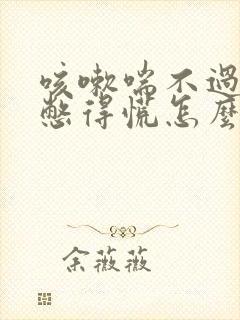 咳嗽喘不過
憋得慌怎麼
余薇薇